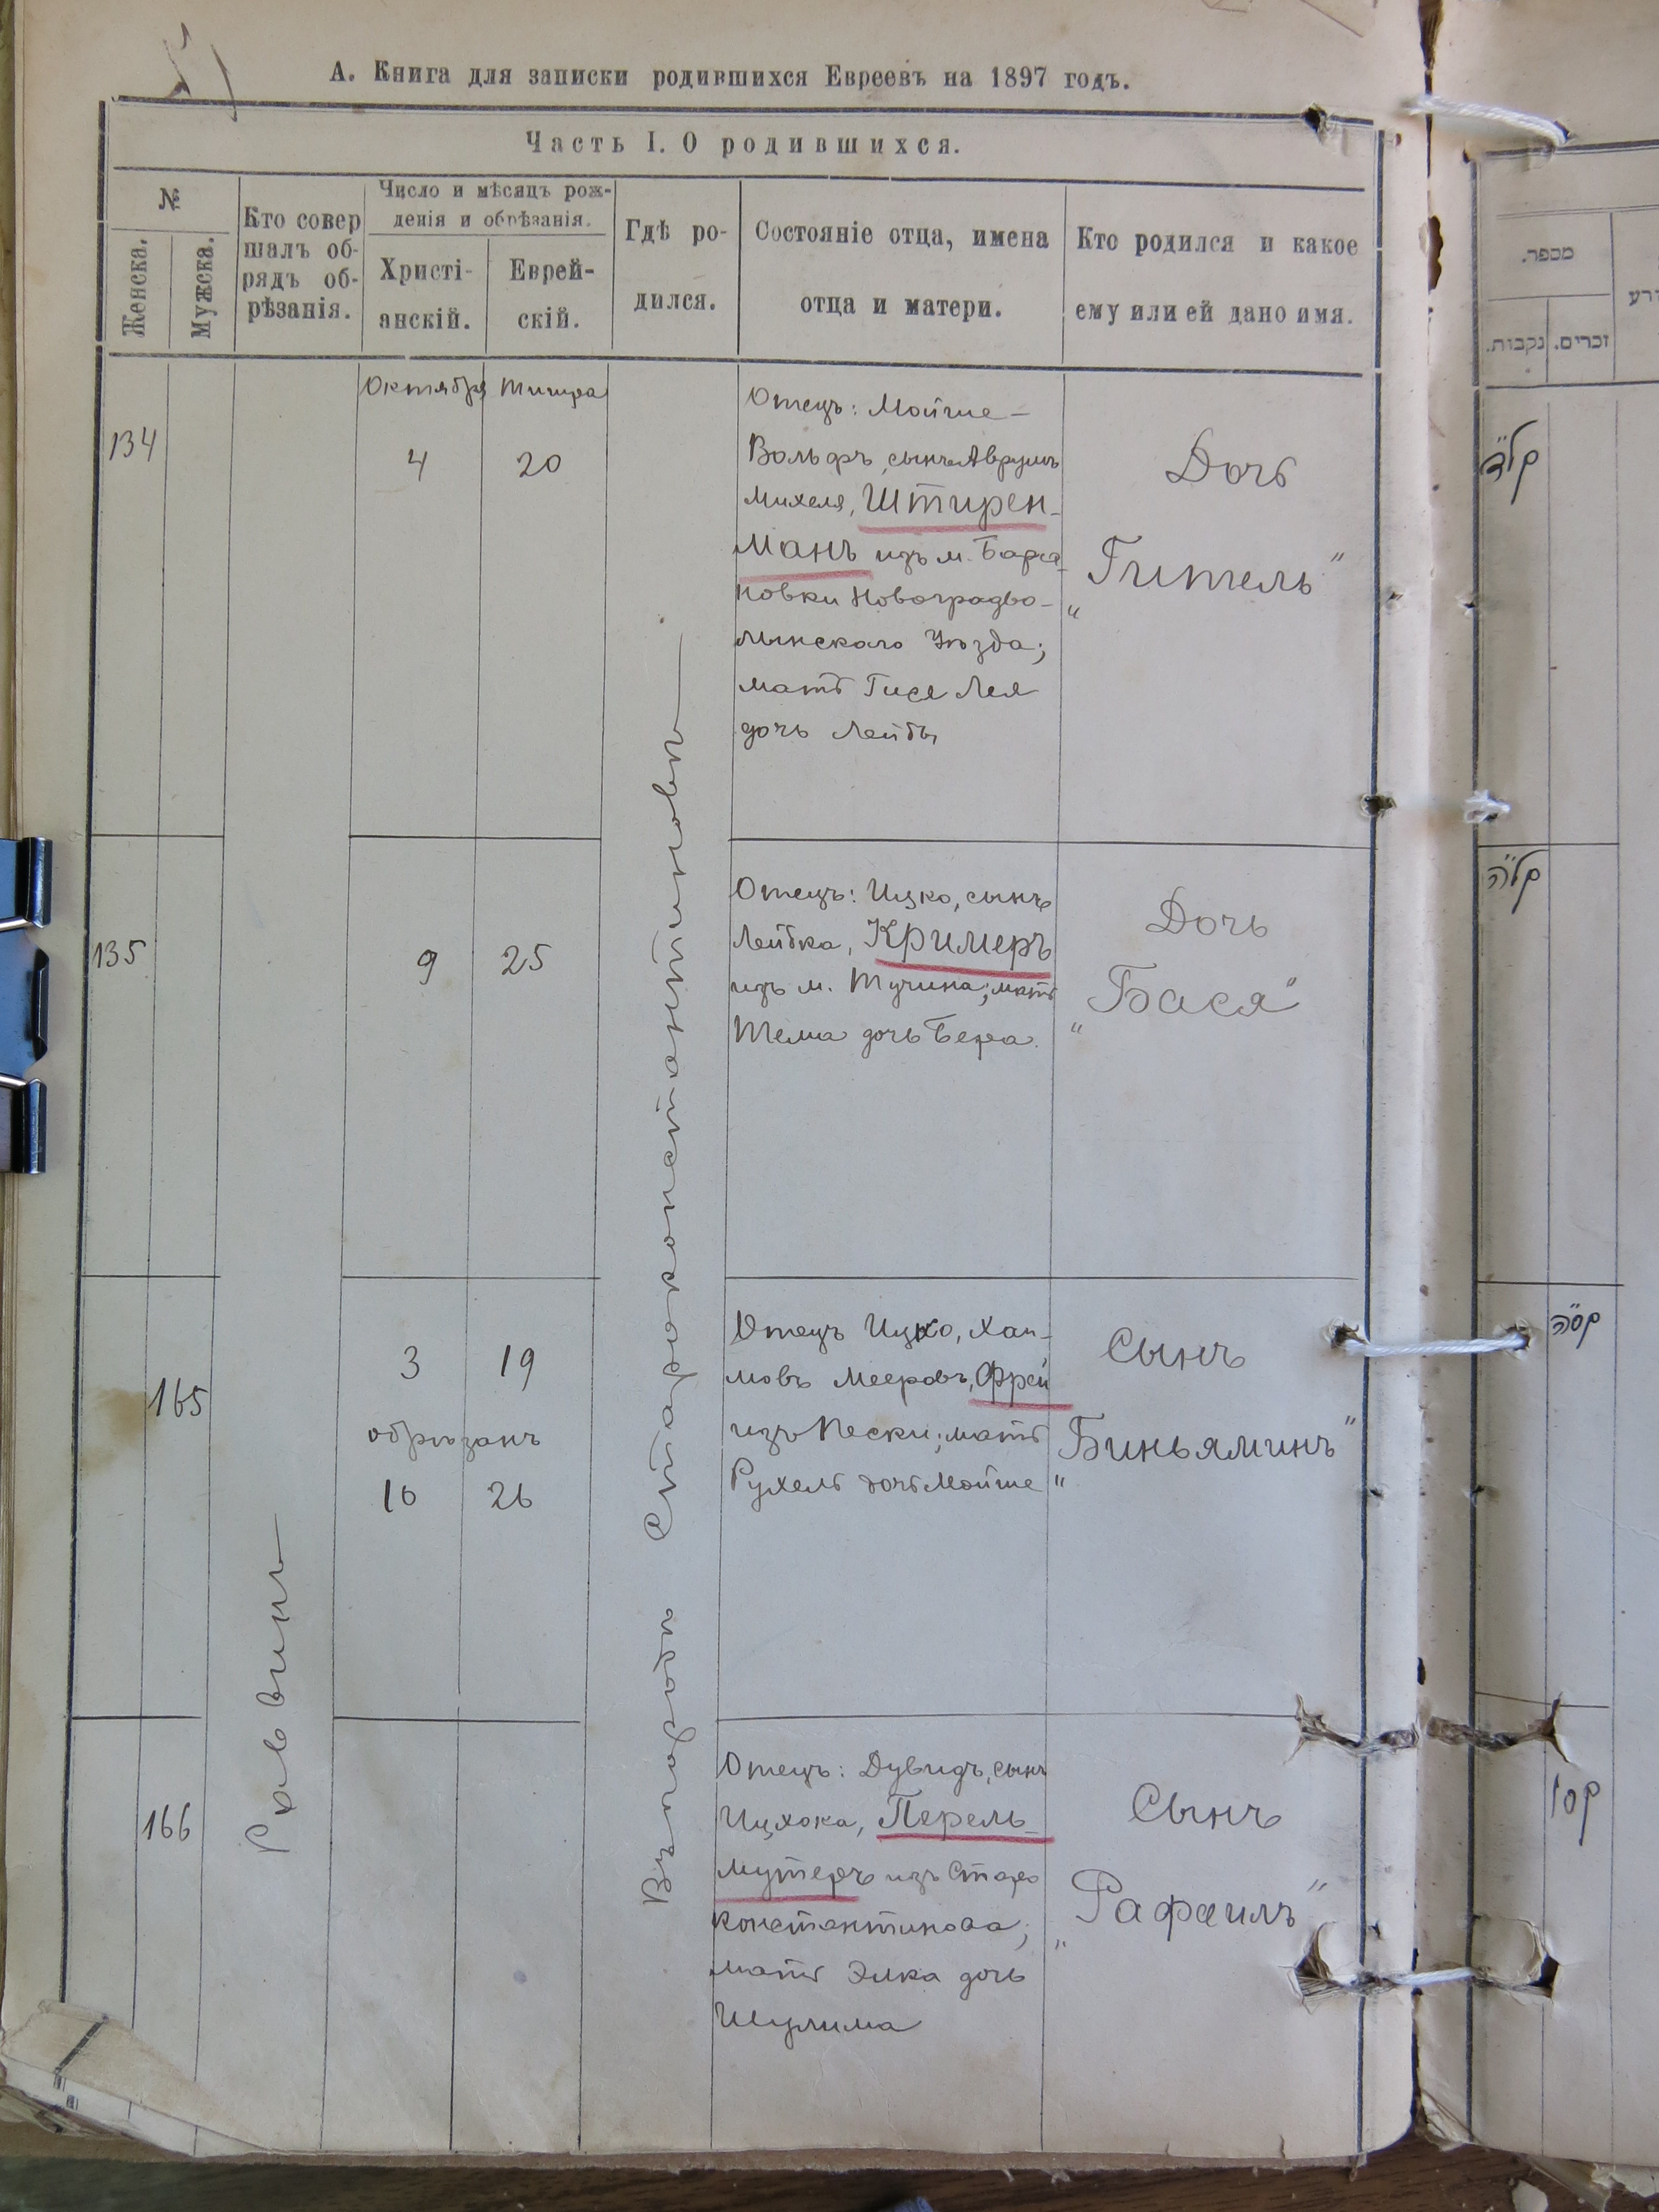 А. Книга для записки родившихся Евреевъ на 1897 годъ.
Часть I. О родившихся.
№
Женска.
Мужска.
Кто совер
шалъ об-
рядъ об-
рѣзанія.
Число и мѣсяцъ рож-
денія и обрѣзанія.
Христі-
анскій.
Еврей-
скій.
Гдѣ ро-
дился.
Состояніе отца, имена
отца и матери.
Кто родился и какое
ему или ей дано имя.
מספר.
נקבות.
זכרים.
Октября
Тишра
134
4
20
Отецъ: Мойше-
Вольфъ, сынъ Аврумъ
Михеля, Штирен-
манъ изъ м. Бара-
новки Новоградво-
лынскаго Уѣзда;
мать Гися Лея
дочь Лейбы
Дочь
„Гитель"
קל"ד
135
9
25
Отецъ: Ицко, сынъ
Лейбка, Кримеръ
изъ м. Тучина; мать
Тема дочь Бера.
Дочь
„Бася"
קל"ה
165
3
19
обрѣзанъ
10
26
Отецъ Ицко, Хаи-
мовъ Мееровъ, Фрей
изъ Пески; мать
Рухель дочь Мойше
Сынъ
„Биньяминъ"
קס"ה
166
Отецъ: Дувидъ, сынъ
Ицхока, Перель-
мутеръ изъ Старо
константинова;
мать Элка дочь
Шулима
Сынъ
„Рафаилъ"
קס"ו
Раввинъ
Въ городѣ Староконстантиновѣ